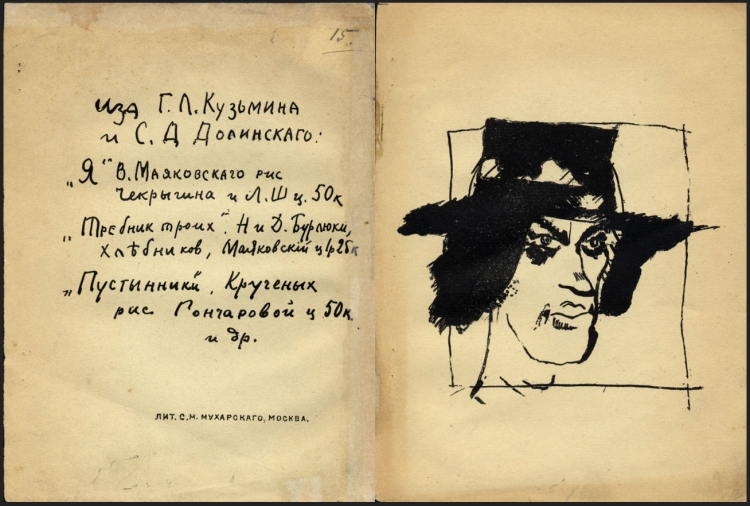 15.
изд Г. Л. Кузьмина
и С. Д Долинскаго:
„Я" В. Маяковскаго рис
Чекрыгина и Л. Ш ц. 50к
„Требник троих". Н и Д. Бурлюки,
Хлѣбников, Маяковскій ц 1р 25к
„Пустинники". Крученых
рис. Гончаровой ц 50к
и др.
ЛИТ. С. М. МУХАРСКАГО, МОСКВА.